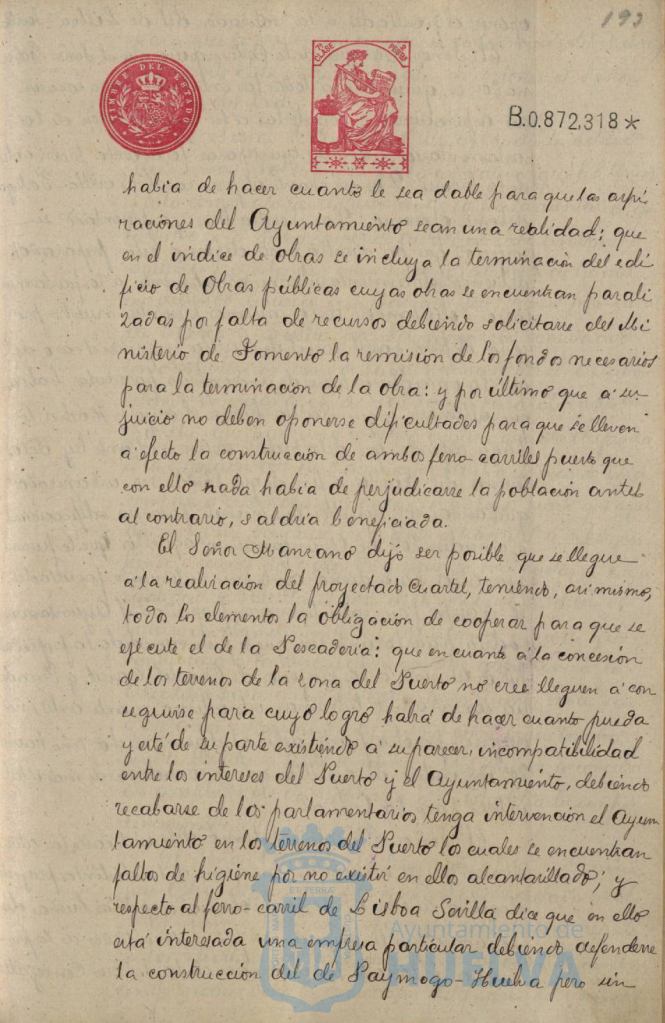 193
TIMBRE DEL ESTADO
7ª CLASE
B.0.872,318*
habia de hacer cuanto le sea dable para que las aspi
raciones del Ayuntamiento sean una realidad; que
en el indice de obras se incluya la terminación del edi
ficio de Obras públicas cuyas obras se encuentran parali
zadas por falta de recursos debiendo solicitarse del Mi
nisterio de Fomento la remisión de los fondos necesarios
para la terminación de la obra: y por último que a su
juicio no deben oponerse dificultades para que se lleven
a efecto la construcción de ambos ferro-carriles puesto que
con ello nada habia de perjudicarse la población antes
al contrario, saldria beneficiada.
El Señor Manzano dijo ser posible que se llegue
a la realización del proyectado Cuartel, teniendo, asi mismo,
todos los elementos la obligación de cooperar para que se
ejecute el de la Pescaderia: que en cuanto a la concesión
de los terrenos de la zona del Puerto no cree lleguen a con
seguirse para cuyo logro habrá de hacer cuanto pueda
y esté de su parte existiendo a su parecer, incompatibilidad
entre los intereses del Puerto y el Ayuntamiento, debiendo
recabarse de los parlamentarios tenga intervención el Ayun
tamiento en los terrenos del Puerto los cuales se encuentran
faltos de higiéne por no existir en ellos alcantarillado; y
respecto al ferro-carril de Lisboa Sevilla dice que en ello
está interesada una empresa particular debiendo defenderse
la construcción del de Paymogo-Huelva pero sin
Ayuntamiento de
HUELVA